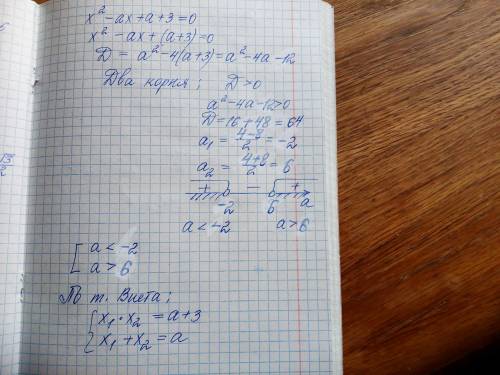 x² - ax + a + 3 = 0
x² - ax + (a+3) = 0
D = a² - 4(a+3) = a² - 4a - 12
Два корня; D > 0
a² - 4a - 12 > 0
D = 16 + 48 = 64
a₁ = (4-8)/2 = -2
a₂ = (4+8)/2 = 6
+ - +
-2 6 a
a < -2 a > 6
[ a < -2
a > 6
По т. Виета;
{ x₁ · x₂ = a+3
x₁ + x₂ = a
13/2